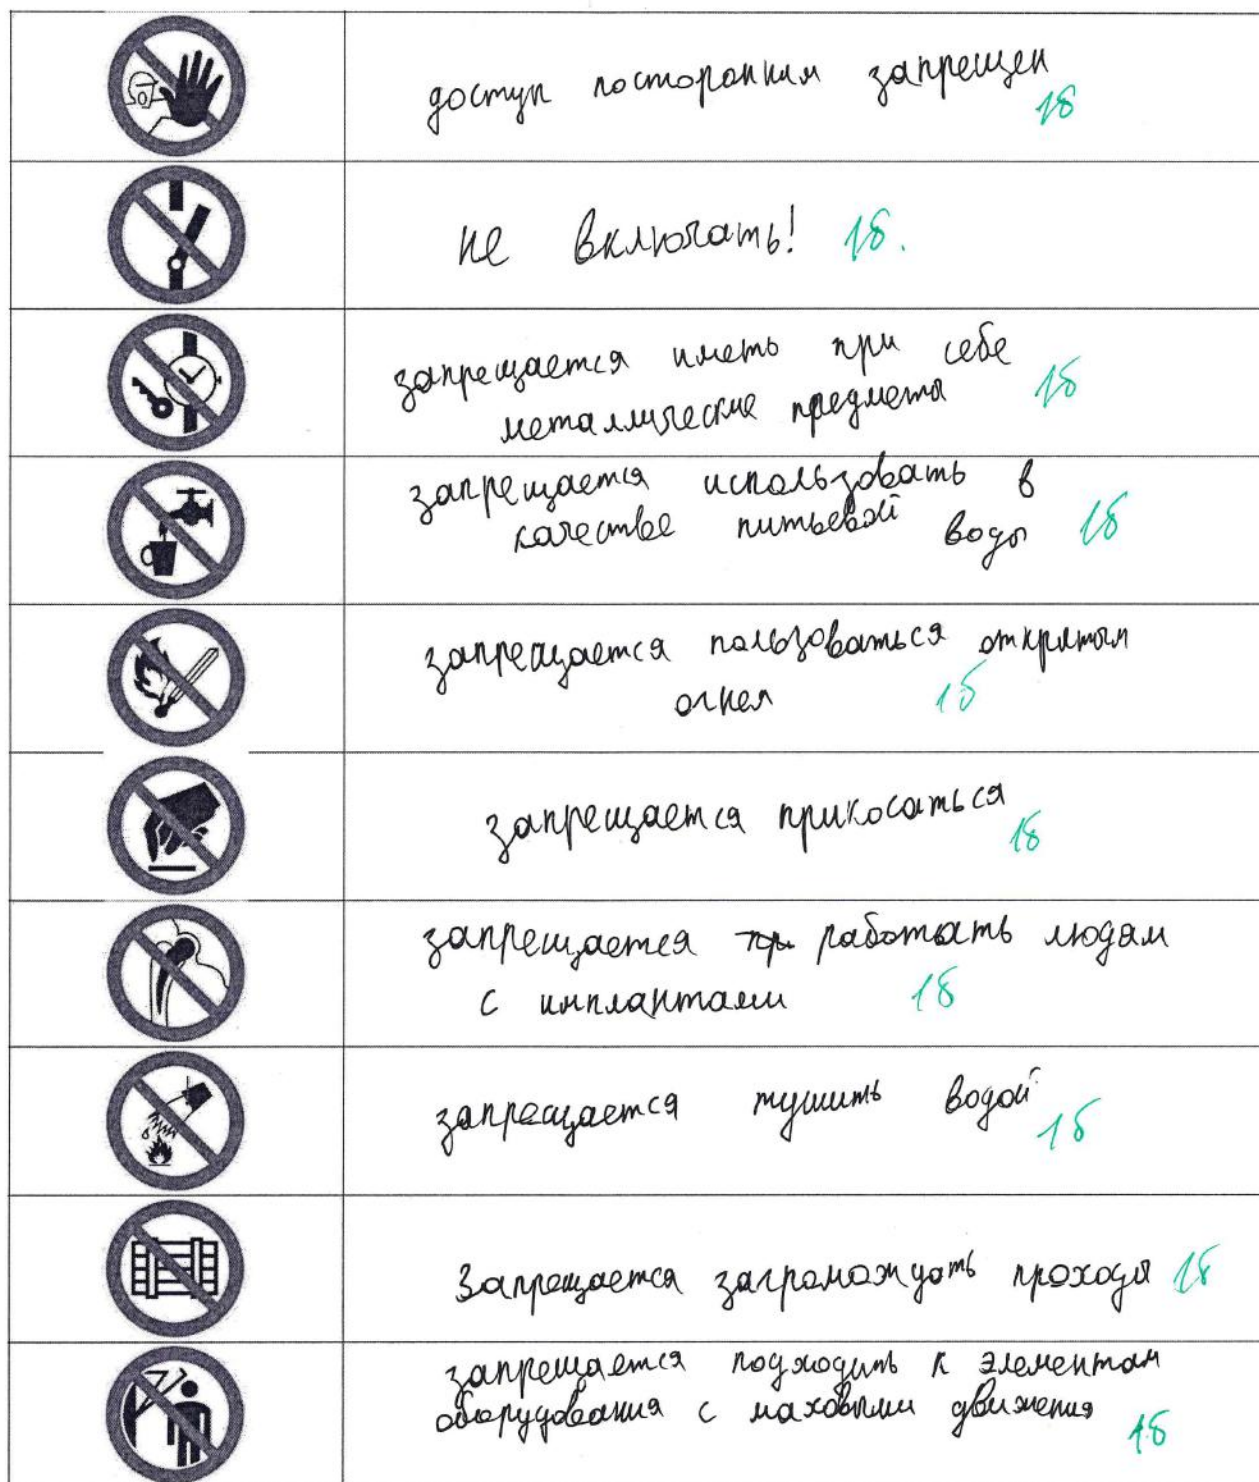 доступ посторонним запрещен
1б
не включать! 1б.
запрещается иметь при себе
металлические предметы 1б
запрещается использовать в
качестве питьевой воды 1б
запрещается пользоваться открытым
огнем 1б
запрещается прикосаться
1б
запрещается пр работать людям
с имплантами 1б
запрещается тушить водой
1б
Запрещается загромождать проходы 1б
запрещается подходить к элементам
оборудования с маховыми движения
1б